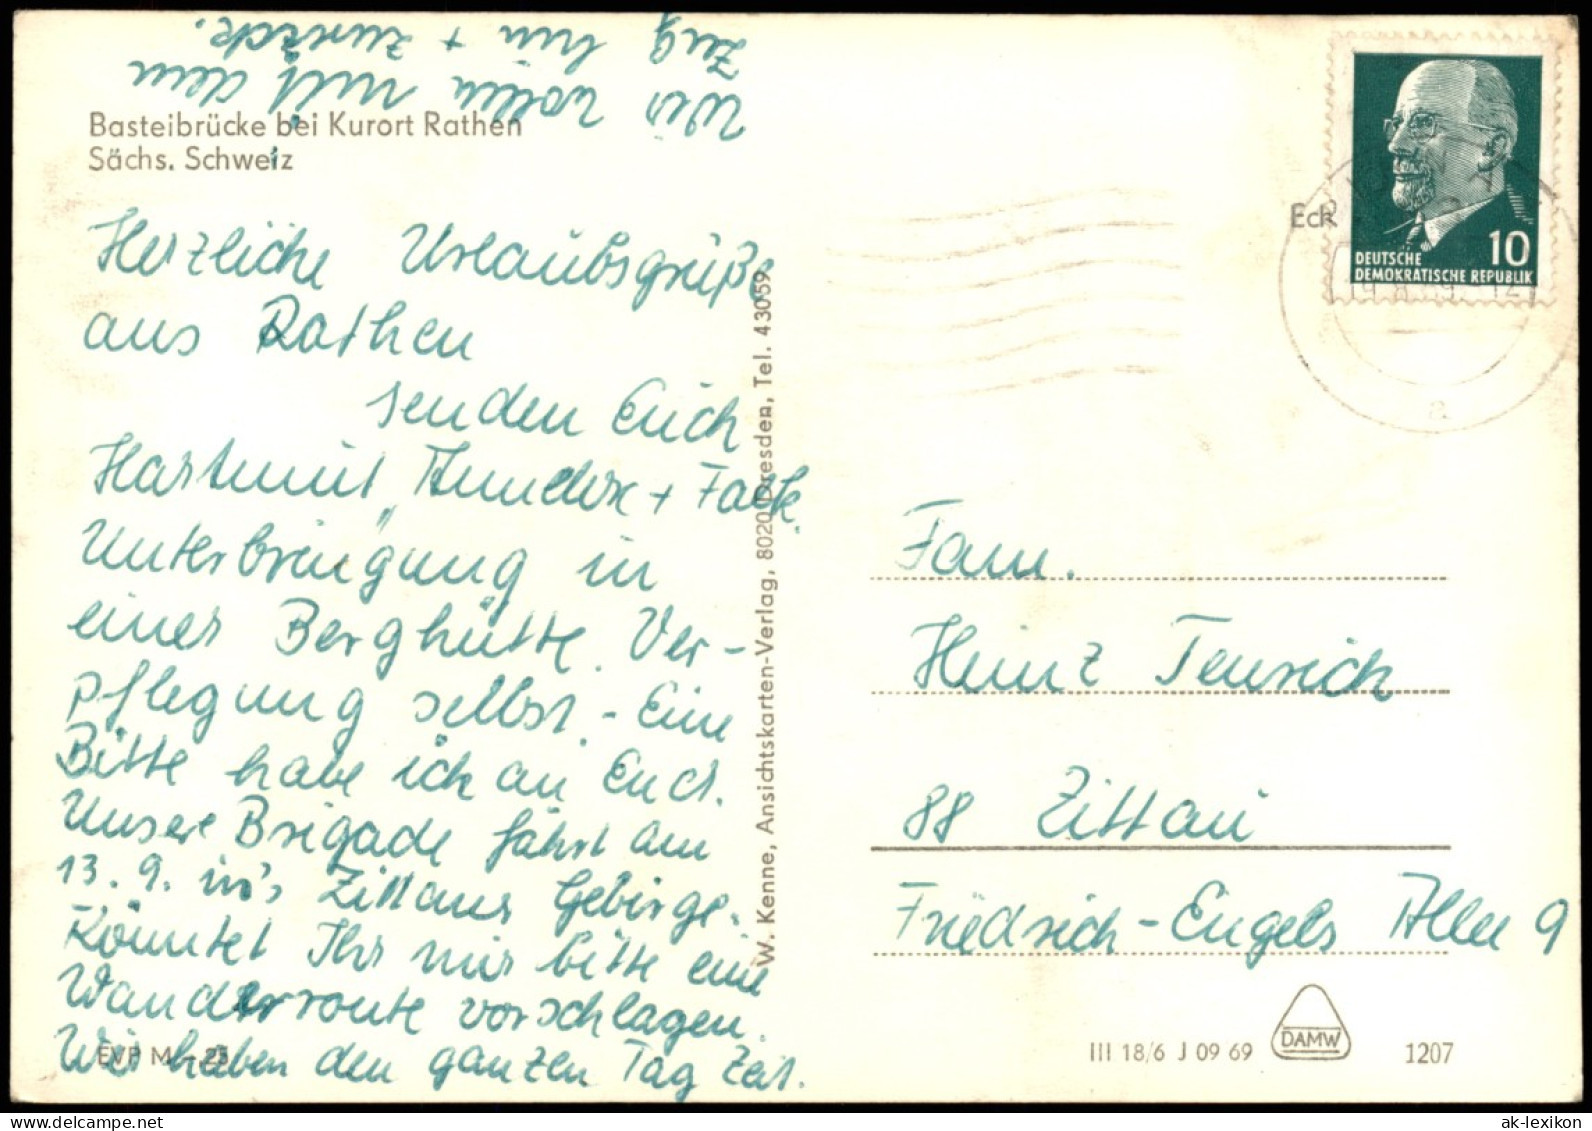 Basteibrücke bei Kurort Rathen
Sächs. Schweiz
Herzliche Urlaubsgrüße
aus Rathen
senden Euch
Hartmut, + Falk.
Unterbringung in
einer Berghütte. Ver-
pflegung selbst. - Eine
Bitte habe ich an Euch.
Unsere Brigade fährt am
13. 9. in's Zittauer Gebirge.
Könntet Ihr mir bitte eine
Wanderroute vorschlagen.
Wir haben den ganzen Tag Zeit.
Wir wollen mit dem
Zug hin + zurück.
EVP M -.25
W. Kenne, Ansichtskarten-Verlag, 8020 Dresden, Tel. 43059
Eck
10
DEUTSCHE
DEMOKRATISCHE REPUBLIK
a
Fam.
Heinz
88 Zittau
Friedrich-Engels Allee 9
III 18/6 J 09 69 DAMW 1207
ak-lexikon